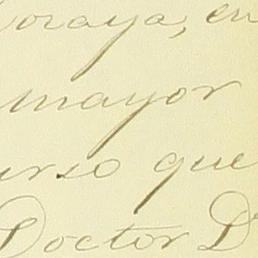 Soraya, en
mayor
urso que
Doctor D